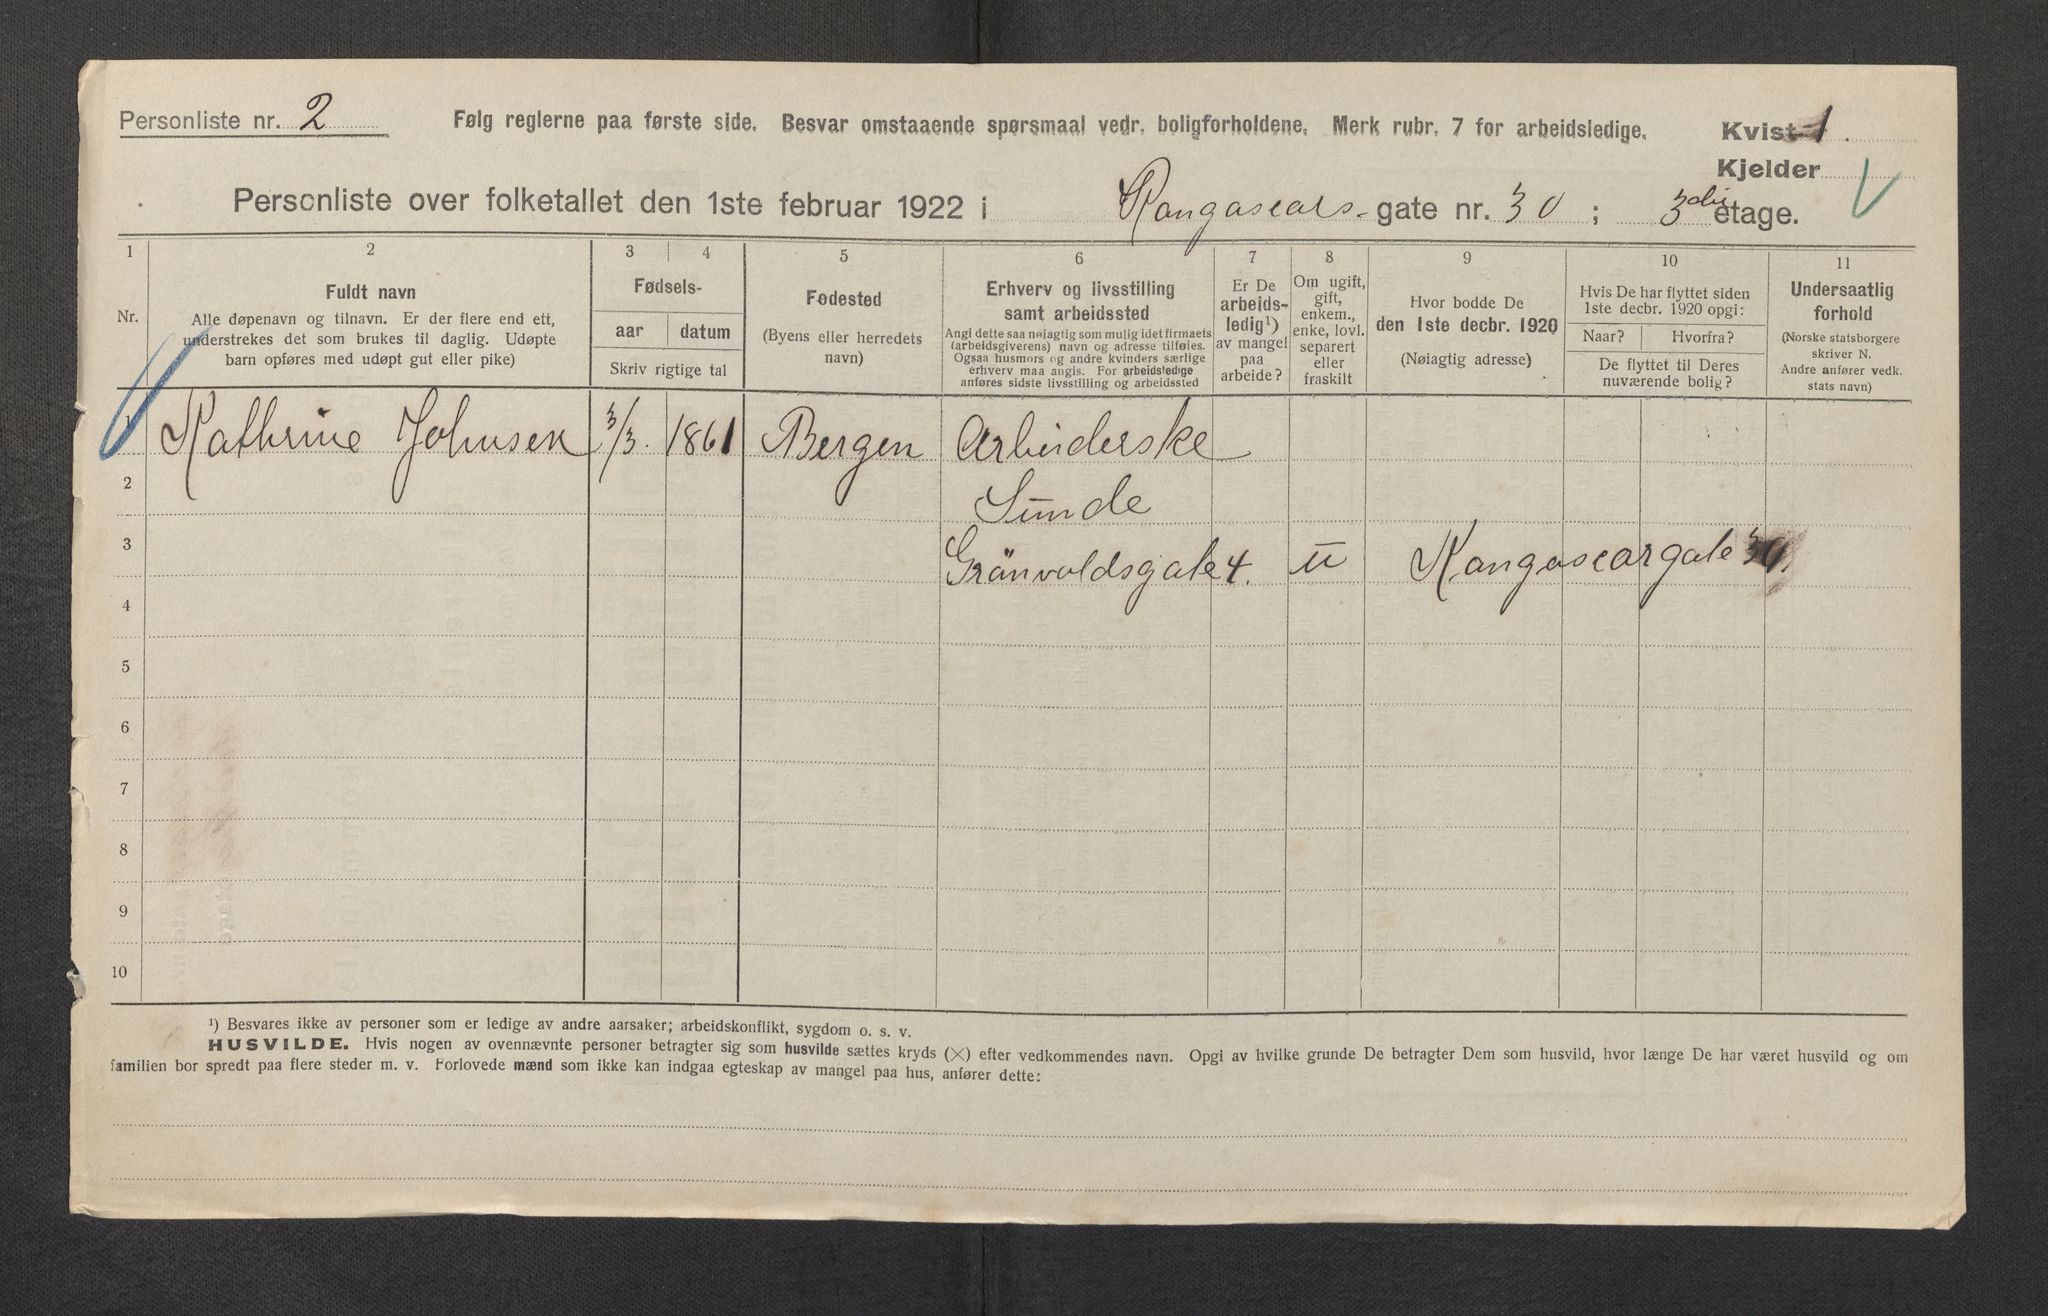 Personliste nr. 2
Følg reglerne paa første side. Besvar omstaaende spørsmaal vedr. boligforholdene. Merk rubr. 7 for arbeidsledige.
Kvist 1
Kjelder
Personliste over folketallet den 1ste februar 1922 i Kangasears-gate nr. 30; 3die etage.
1 2 3 4 5 6 7 8 9 10 11
Nr.
Fuldt navn
Alle døpenavn og tilnavn. Er der flere end ett,
understrekes det som brukes til daglig. Udøpte
barn opføres med udøpt gut eller pike)
Fødsels-
aar datum
Skriv rigtige tal
Fødested
(Byens eller herredets
navn)
Erhverv og livsstilling
samt arbeidssted
Angi dette saa nøiagtig som mulig idet firmaets
(arbeidsgiverens) navn og adresse tilføies.
Ogsaa husmors og andre kvinders særlige
erhverv maa angis. For arbeidsledige
anføres sidste livsstilling og arbeidssted
Er De
arbeids-
ledig¹)
av mangel
paa
arbeide?
Om ugift,
gift,
enkem.,
enke, lovl.
separert
eller
fraskilt
Hvor bodde De
den 1ste decbr. 1920
(Nøiagtig adresse)
Hvis De har flyttet siden
1ste decbr. 1920 opgi:
Naar? Hvorfra?
De flyttet til Deres
nuværende bolig?
Undersaatlig
forhold
(Norske statsborgere
skriver N.
Andre anfører vedk.
stats navn)
1 Kathrine Johnsen 3/3. 1861 Bergen Arbeiderske
2 Sunde
3 Grönvoldsgate 4. u Kangaseargate 30.
4
5
6
7
8
9
10
¹) Besvares ikke av personer som er ledige av andre aarsaker; arbeidskonflikt, sygdom o. s. v.
HUSVILDE. Hvis nogen av ovennævnte personer betragter sig som husvilde sættes kryds (×) efter vedkommendes navn. Opgi av hvilke grunde De betragter Dem som husvild, hvor længe De har været husvild og om
familien bor spredt paa flere steder m. v. Forlovede mænd som ikke kan indgaa egteskap av mangel paa hus, anfører dette: